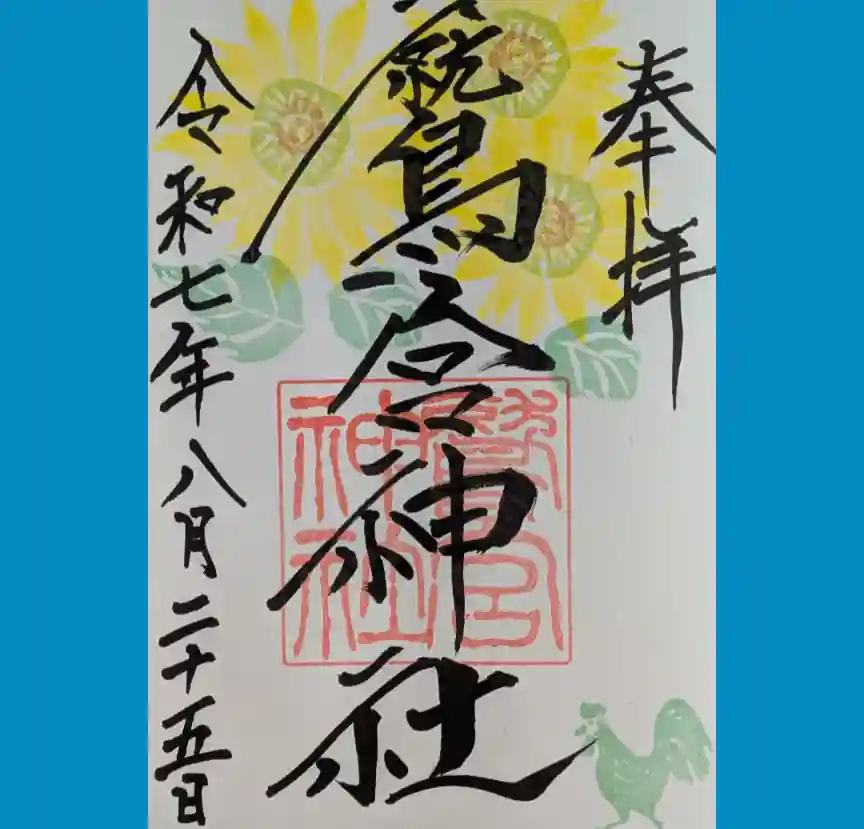 奉拝
鷹合神社
令和七年八月二十五日
鷹合
神社